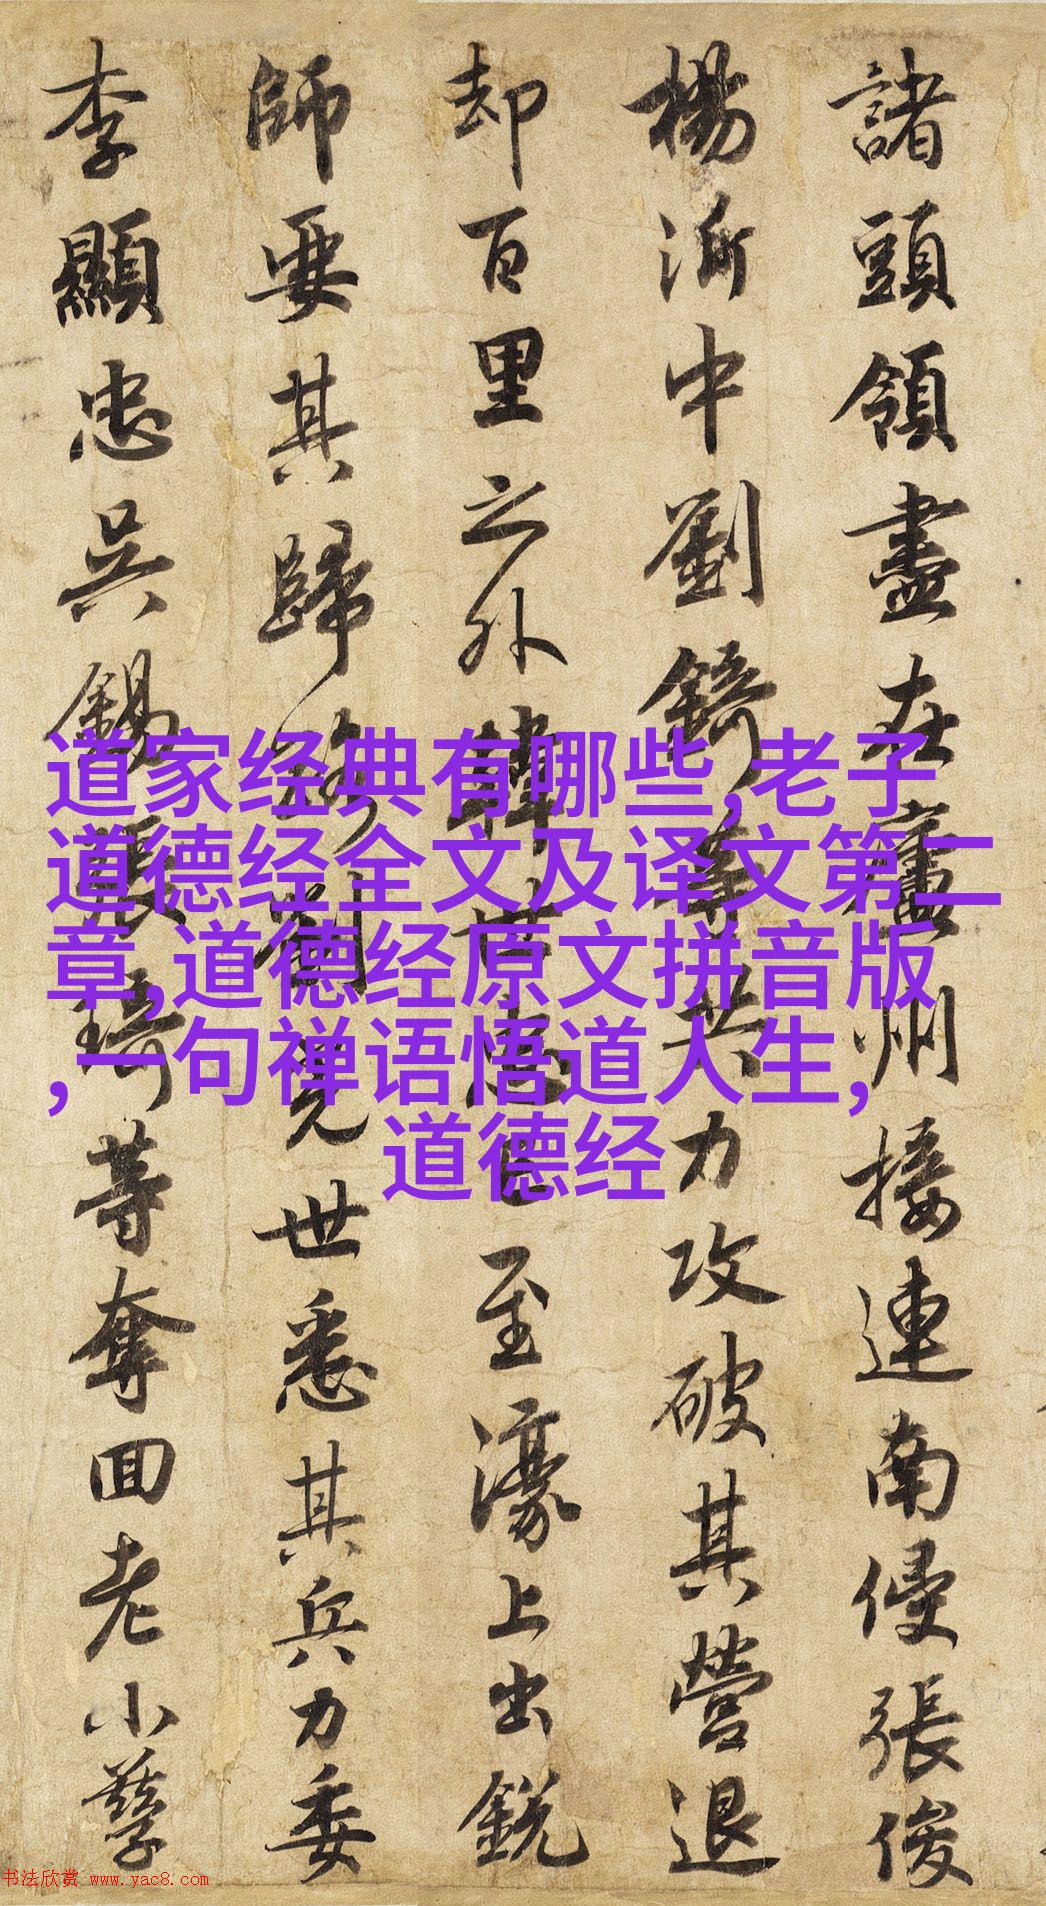 諸頭領盡在廬州接連南侵張俊
楊沂中劉錡等共力攻破其營退
却百里之外韓世忠已至濠上出銳
師要其歸路劉光世悉其兵力委
李顯忠吳錫張琦等奪回老小孳
道家经典有哪些,老子
道德经全文及译文第二
章,道德经原文拼音版
,一句禅语悟道人生,
道德经
书法欣赏 www.yac8.com